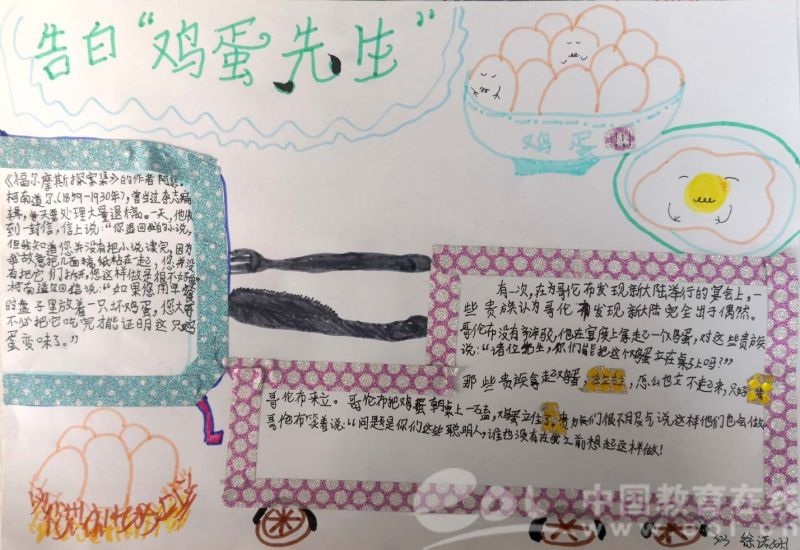 告白“鸡蛋先生”
鸡蛋
《福尔摩斯探案集》的作者阿瑟·
柯南道尔(1859-1930年),曾当过杂志编
辑,每天要处理大量退稿。一天,他收
到一封信,信上说:“您退回我的小说,
但我知道您并没有把小说读完,因为
我故意把几面稿纸粘在一起,您并没
有把它们拆开,您这样做是很不好的。”
柯南道尔回信说:“如果您用早餐
的盘子里放着一只坏鸡蛋,您大可
不必把它吃完才能证明这只鸡
蛋变味了。”
有一次,在为哥伦布发现新大陆举行的宴会上,一
些贵族认为哥伦布发现新大陆完全出于偶然。
哥伦布没有争辩,他在宴席上拿起一个鸡蛋,对这些贵族
说:“诸位先生,你们能把这个鸡蛋立在桌子上吗?”
那些贵族拿起鸡蛋,左立右立,怎么也立不起来,只好
哥伦布来立。哥伦布把鸡蛋朝桌上一磕,鸡蛋立住了。贵族们很不服气说这样他们也会做
哥伦布笑着说:“问题是你们这些聪明人,谁也没有在我之前想起这样做!
中国教育在线
303 徐诺